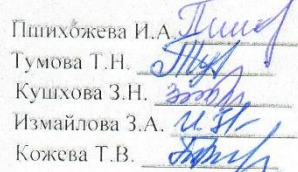 Пшихожева И.А.
Тумова Т.Н.
Кушхова З.Н.
Измайлова З.А.
Кожева Т.В.